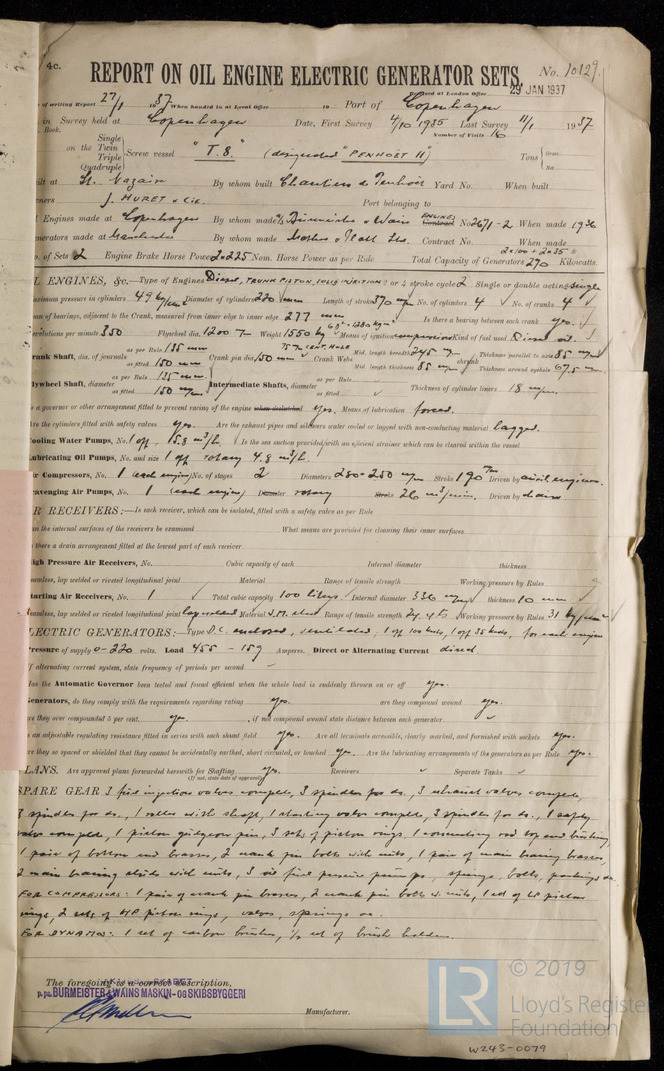 4c.
REPORT ON OIL ENGINE ELECTRIC GENERATOR SETS.
No. 10129.
29 JAN 1937
of writing Report 27/1 1937 When handed in at Local Office 19 Port of Copenhagen
in Survey held at Copenhagen Date, First Survey 4/10 1935 Last Survey 11/1 1937
Book. Number of Visits 16
on the Single Twin Triple Quadruple Screw vessel "T.8." (designated "PENHOËT II") Tons Gross Net
St. Nazaire By whom built Chantiers & Penhoët Yard No. When built
J. HURET & Cie. Port belonging to
Engines made at Copenhagen By whom made Burmeister & Wain ENGINES Contract No 2671-2 When made 1936
made at Manchester By whom made Mather & Platt Ltd. Contract No. When made
2x100 + 2x35
of Sets 2 Engine Brake Horse Power 2x225 Nom. Horse Power as per Rule Total Capacity of Generators 270 Kilowatts.
ENGINES, &c.—Type of Engines Diesel, TRUNK PISTON, SOLID INJECTION 2 or 4 stroke cycle 2 Single or double acting single
maximum pressure in cylinders 49 kg/cm² Diameter of cylinders 220 mm Length of stroke 370 mm No. of cylinders 4 No. of cranks 4
of bearings, adjacent to the Crank, measured from inner edge to inner edge 277 mm Is there a bearing between each crank yes.
Revolutions per minute 350 Flywheel dia. 1200 Weight 1550 kg Means of ignition compression Kind of fuel used Diesel oil.
Crank Shaft, dia. of journals as per Rule 135 mm as fitted 150 mm Crank pin dia. 150 mm Crank Webs Mid. length breadth 245 Mid. length thickness 85 Thickness parallel to axis 85 Thickness around eyehole 67.5
Flywheel Shaft, diameter as per Rule 135 mm as fitted 150 mm Intermediate Shafts, diameter as per Rule as fitted Thickness of cylinder liners 18
governor or other arrangement fitted to prevent racing of the engine when declutched yes. Means of lubrication forced.
Are the cylinders fitted with safety valves yes. Are the exhaust pipes and silencers water cooled or lagged with non-conducting material lagged.
Cooling Water Pumps, No. 1 off, 15.8 m³/h. Is the sea suction provided with an efficient strainer which can be cleared within the vessel
Lubricating Oil Pumps, No. and size 1 off rotary 4.8 m³/h.
Air Compressors, No. 1 (each engine) No. of stages 2 Diameters 280-250 Stroke 190 Driven by
Scavenging Air Pumps, No. 1 (each engine) Diameter rotary Stroke 26 m³/min. Driven by chain
AIR RECEIVERS:—Is each receiver, which can be isolated, fitted with a safety valve as per Rule
Can the internal surfaces of the receivers be examined What means are provided for cleaning their inner surfaces
Is there a drain arrangement fitted at the lowest part of each receiver
High Pressure Air Receivers, No. Cubic capacity of each Internal diameter thickness
Seamless, lap welded or riveted longitudinal joint Material Range of tensile strength Working pressure by Rules
Starting Air Receivers, No. 1 Total cubic capacity 100 liters Internal diameter 336 thickness 10 mm
Seamless, lap welded or riveted longitudinal joint lap welded Material S.M. steel Range of tensile strength Working pressure by Rules 31 kg/cm²
ELECTRIC GENERATORS:—Type D.C. enclosed, ventilated, 1 off 100 kwts, 1 off 35 kwts, for each engine
Pressure of supply 0-220 volts. Load 455 - 159 Amperes. Direct or Alternating Current direct
If alternating current system, state frequency of periods per second
Has the Automatic Governor been tested and found efficient when the whole load is suddenly thrown on or off yes.
Generators, do they comply with the requirements regarding rating yes. are they compound wound yes.
are they over compounded 5 per cent. yes. , if not compound wound state distance between each generator
an adjustable regulating resistance fitted in series with each shunt field yes. Are all terminals accessible, clearly marked, and furnished with sockets yes.
are they so spaced or shielded that they cannot be accidentally earthed, short circuited, or touched yes. Are the lubricating arrangements of the generators as per Rule yes.
PLANS. Are approved plans forwarded herewith for Shafting yes. Receivers Separate Tanks
(If not, state date of approval)
SPARE GEAR 3 fuel injection valves complete, 3 spindles for do., 3 exhaust valves, complete,
3 spindles for do., 1 roller with shaft, 1 starting valve complete, 3 spindles for do., 1 safety
valve complete, 1 piston gudgeon pin, 3 sets of piston rings, 1 connecting rod top end bushing
1 pair of bottom end brasses, 2 crank pin bolts with nuts, 1 pair of main bearing brasses,
2 main bearing studs with nuts, 3 oil fuel pressure pumps, springs, bolts, packings &c.
FOR COMPRESSORS: 1 pair of crank pin brasses, 2 crank pin bolts w. nuts, 1 set of LP piston
rings, 2 sets of HP piston rings, valves, springs &c.
FOR DYNAMOS: 1 set of carbon brushes, ½ set of brush holders.
The foregoing is a correct description.
p.p. BURMEISTER & WAINS MASKIN- OG SKIBSBYGGERI
Manufacturer.
LR © 2019
Lloyd's Register
Foundation
W243-0079